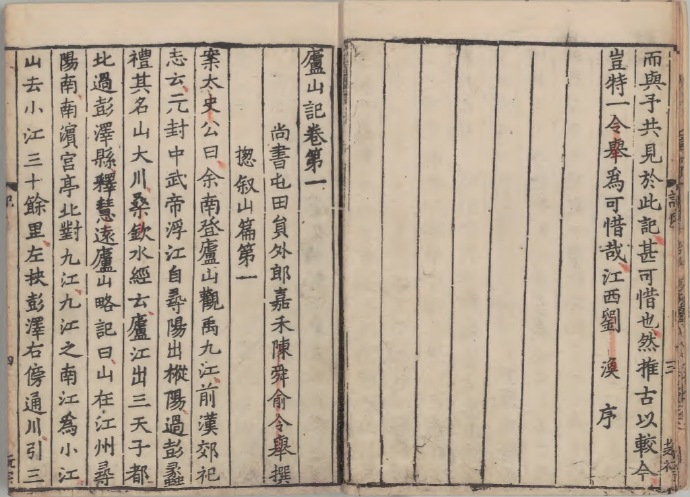 而與予共見於此記甚可惜也然推古以較今
豈特一令舉爲可惜哉江西劉渙序
廬山記卷第一
尚書屯田貟外郎嘉禾陳舜俞令舉撰
揔叙山篇第一
案太史公曰余南登廬山觀禹九江前漢郊祀
志云元封中武帝浮江自尋陽出樅陽過彭蠡
禮其名山大川桑欽水經云廬江出三天子都
北過彭澤縣釋慧遠廬山略記曰山在江州尋
陽南南濵宮亭北對九江九江之南江爲小江
山去小江三十餘里左挾彭澤右傍通川引三
三
四